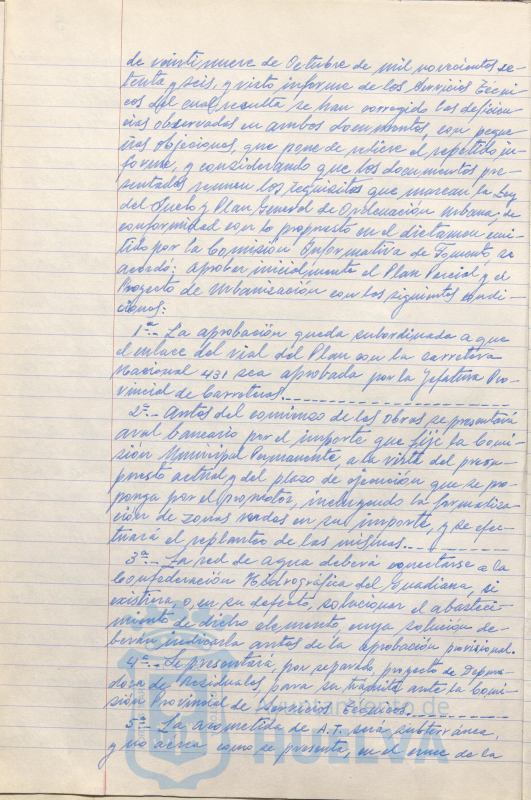 de veintinueve de Octubre de mil novecientos se-
tenta y seis, y visto informe de los Servicios Técni-
cos del cual resulta se han corregido las deficien-
cias observadas en ambos documentos, con peque-
ñas objeciones, que pone de relieve el repetido in-
forme, y considerando que los documentos pre-
sentados reunen los requisitos que marcan la Ley
del Suelo y Plan General de Ordenación Urbana, de
conformidad con lo propuesto en el dictamen emi-
tido por la Comisión Informativa de Fomento, se
acordó: aprobar inicialmente el Plan Parcial y el
Proyecto de Urbanización con las siguientes condi-
ciones:
1ª.- La aprobación queda subordinada a que
el enlace del vial del Plan con la carretera
Nacional 431 sea aprobada por la Jefatura Pro-
vincial de Carreteras.
2ª.- Antes del comienzo de las obras se presentará
aval bancario por el importe que fije la Comi-
sión Municipal Permanente, a la vista del presu-
puesto actual y del plazo de ejecución que se pro-
ponga por el promotor, incluyendo la formaliza-
ción de zonas verdes en su importe, y se efec-
tuará el replanteo de las mismas.
3ª.- La red de agua deberá conectarse a la
Confederación Hidrográfica del Guadiana, si
existiera, o, en su defecto, solucionar el abasteci-
miento de dicho elemento, cuya solución de-
berán indicarla antes de la aprobación provisional.
4ª.- Se presentará por separado proyecto de Depura-
dora de Residuales para su trámite ante la Comi-
sión Provincial de Servicios Técnicos.
5ª.- La acometida de A.T. será subterránea,
y no aérea como se presenta, en el cruce de la
Ayuntamiento de
HUELVA